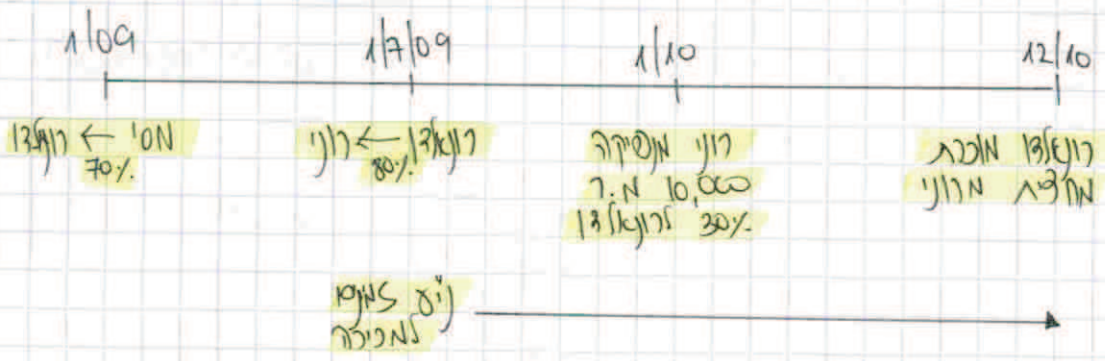 1/09
1/7/09
1/10
12/10
מסי ← רונאלדו
70%
רונאלדו ← רוני
80%
רוני מנפיקה
10,000 מ.ר
30% לרונאלדו
רונאלדו מוכרת
מחצית מרוני
ני"ע זמינים
למכירה